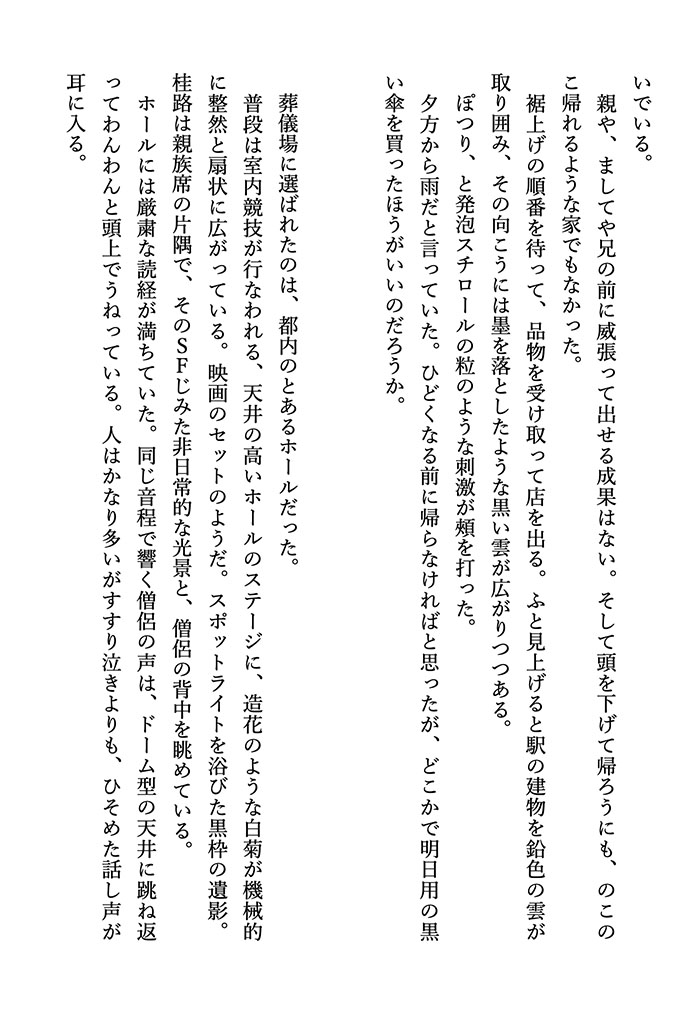 いでいる。
　親や、ましてや兄の前に威張って出せる成果はない。そして頭を下げて帰ろうにも、のこの
こ帰れるような家でもなかった。
　裾上げの順番を待って、品物を受け取って店を出る。ふと見上げると駅の建物を鉛色の雲が
取り囲み、その向こうには墨を落としたような黒い雲が広がりつつある。
　ぽつり、と発泡スチロールの粒のような刺激が頬を打った。
　夕方から雨だと言っていた。ひどくなる前に帰らなければと思ったが、どこかで明日用の黒
い傘を買ったほうがいいのだろうか。
　葬儀場に選ばれたのは、都内のとあるホールだった。
　普段は室内競技が行なわれる、天井の高いホールのステージに、造花のような白菊が機械的
に整然と扇状に広がっている。映画のセットのようだ。スポットライトを浴びた黒枠の遺影。
桂路は親族席の片隅で、そのＳＦじみた非日常的な光景と、僧侶の背中を眺めている。
　ホールには厳粛な読経が満ちていた。同じ音程で響く僧侶の声は、ドーム型の天井に跳ね返
ってわんわんと頭上でうねっている。人はかなり多いがすすり泣きよりも、ひそめた話し声が
耳に入る。